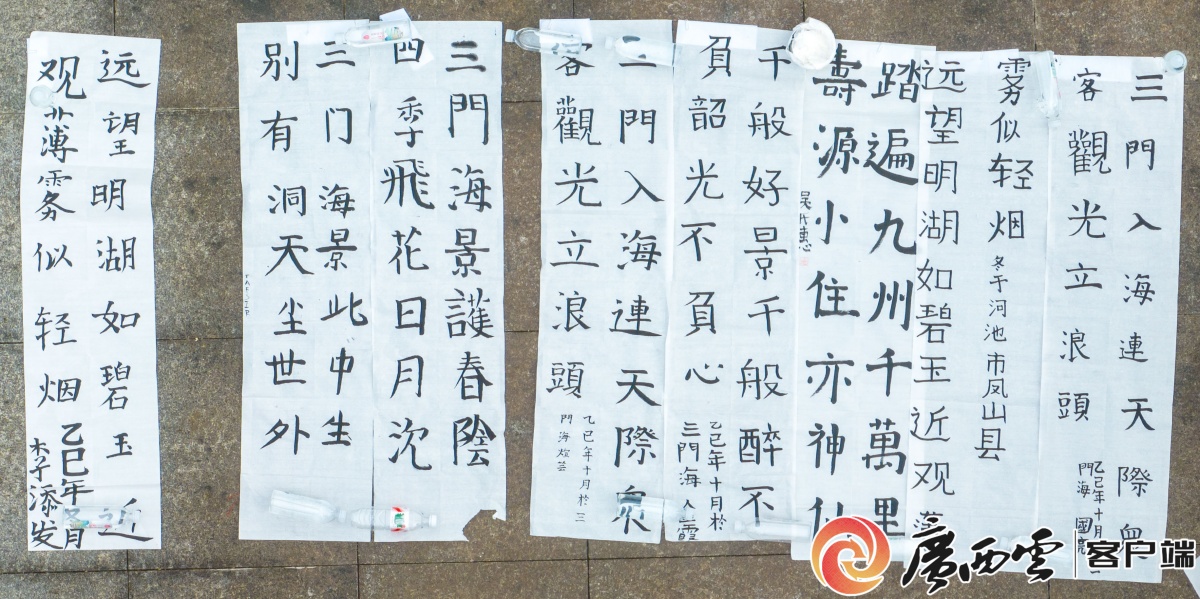 三門入海連天際
客觀光立浪頭
乙巳年十月
門海 國亮
远望明湖如碧玉近观薄
雾似轻烟 冬于河池市凤山县
踏遍九州千萬里
壽源小住亦神仙
千般好景千般醉不
負韶光不負心
乙巳年十月於
三門海人霞
三門入海連天際衆
客觀光立浪頭
乙巳年十月於三
門海煌芸
三門海景護春陰
四季飛花日月沈
三门海景此中生
别有洞天尘世外
远望明湖如碧玉近
观薄雾似轻烟 乙巳年冬月
李添发
廣西雲 客户端